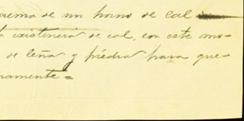 rema de un horno de cal
existencia de cal, con este mo-
de leña y piedra para que-
ramente =